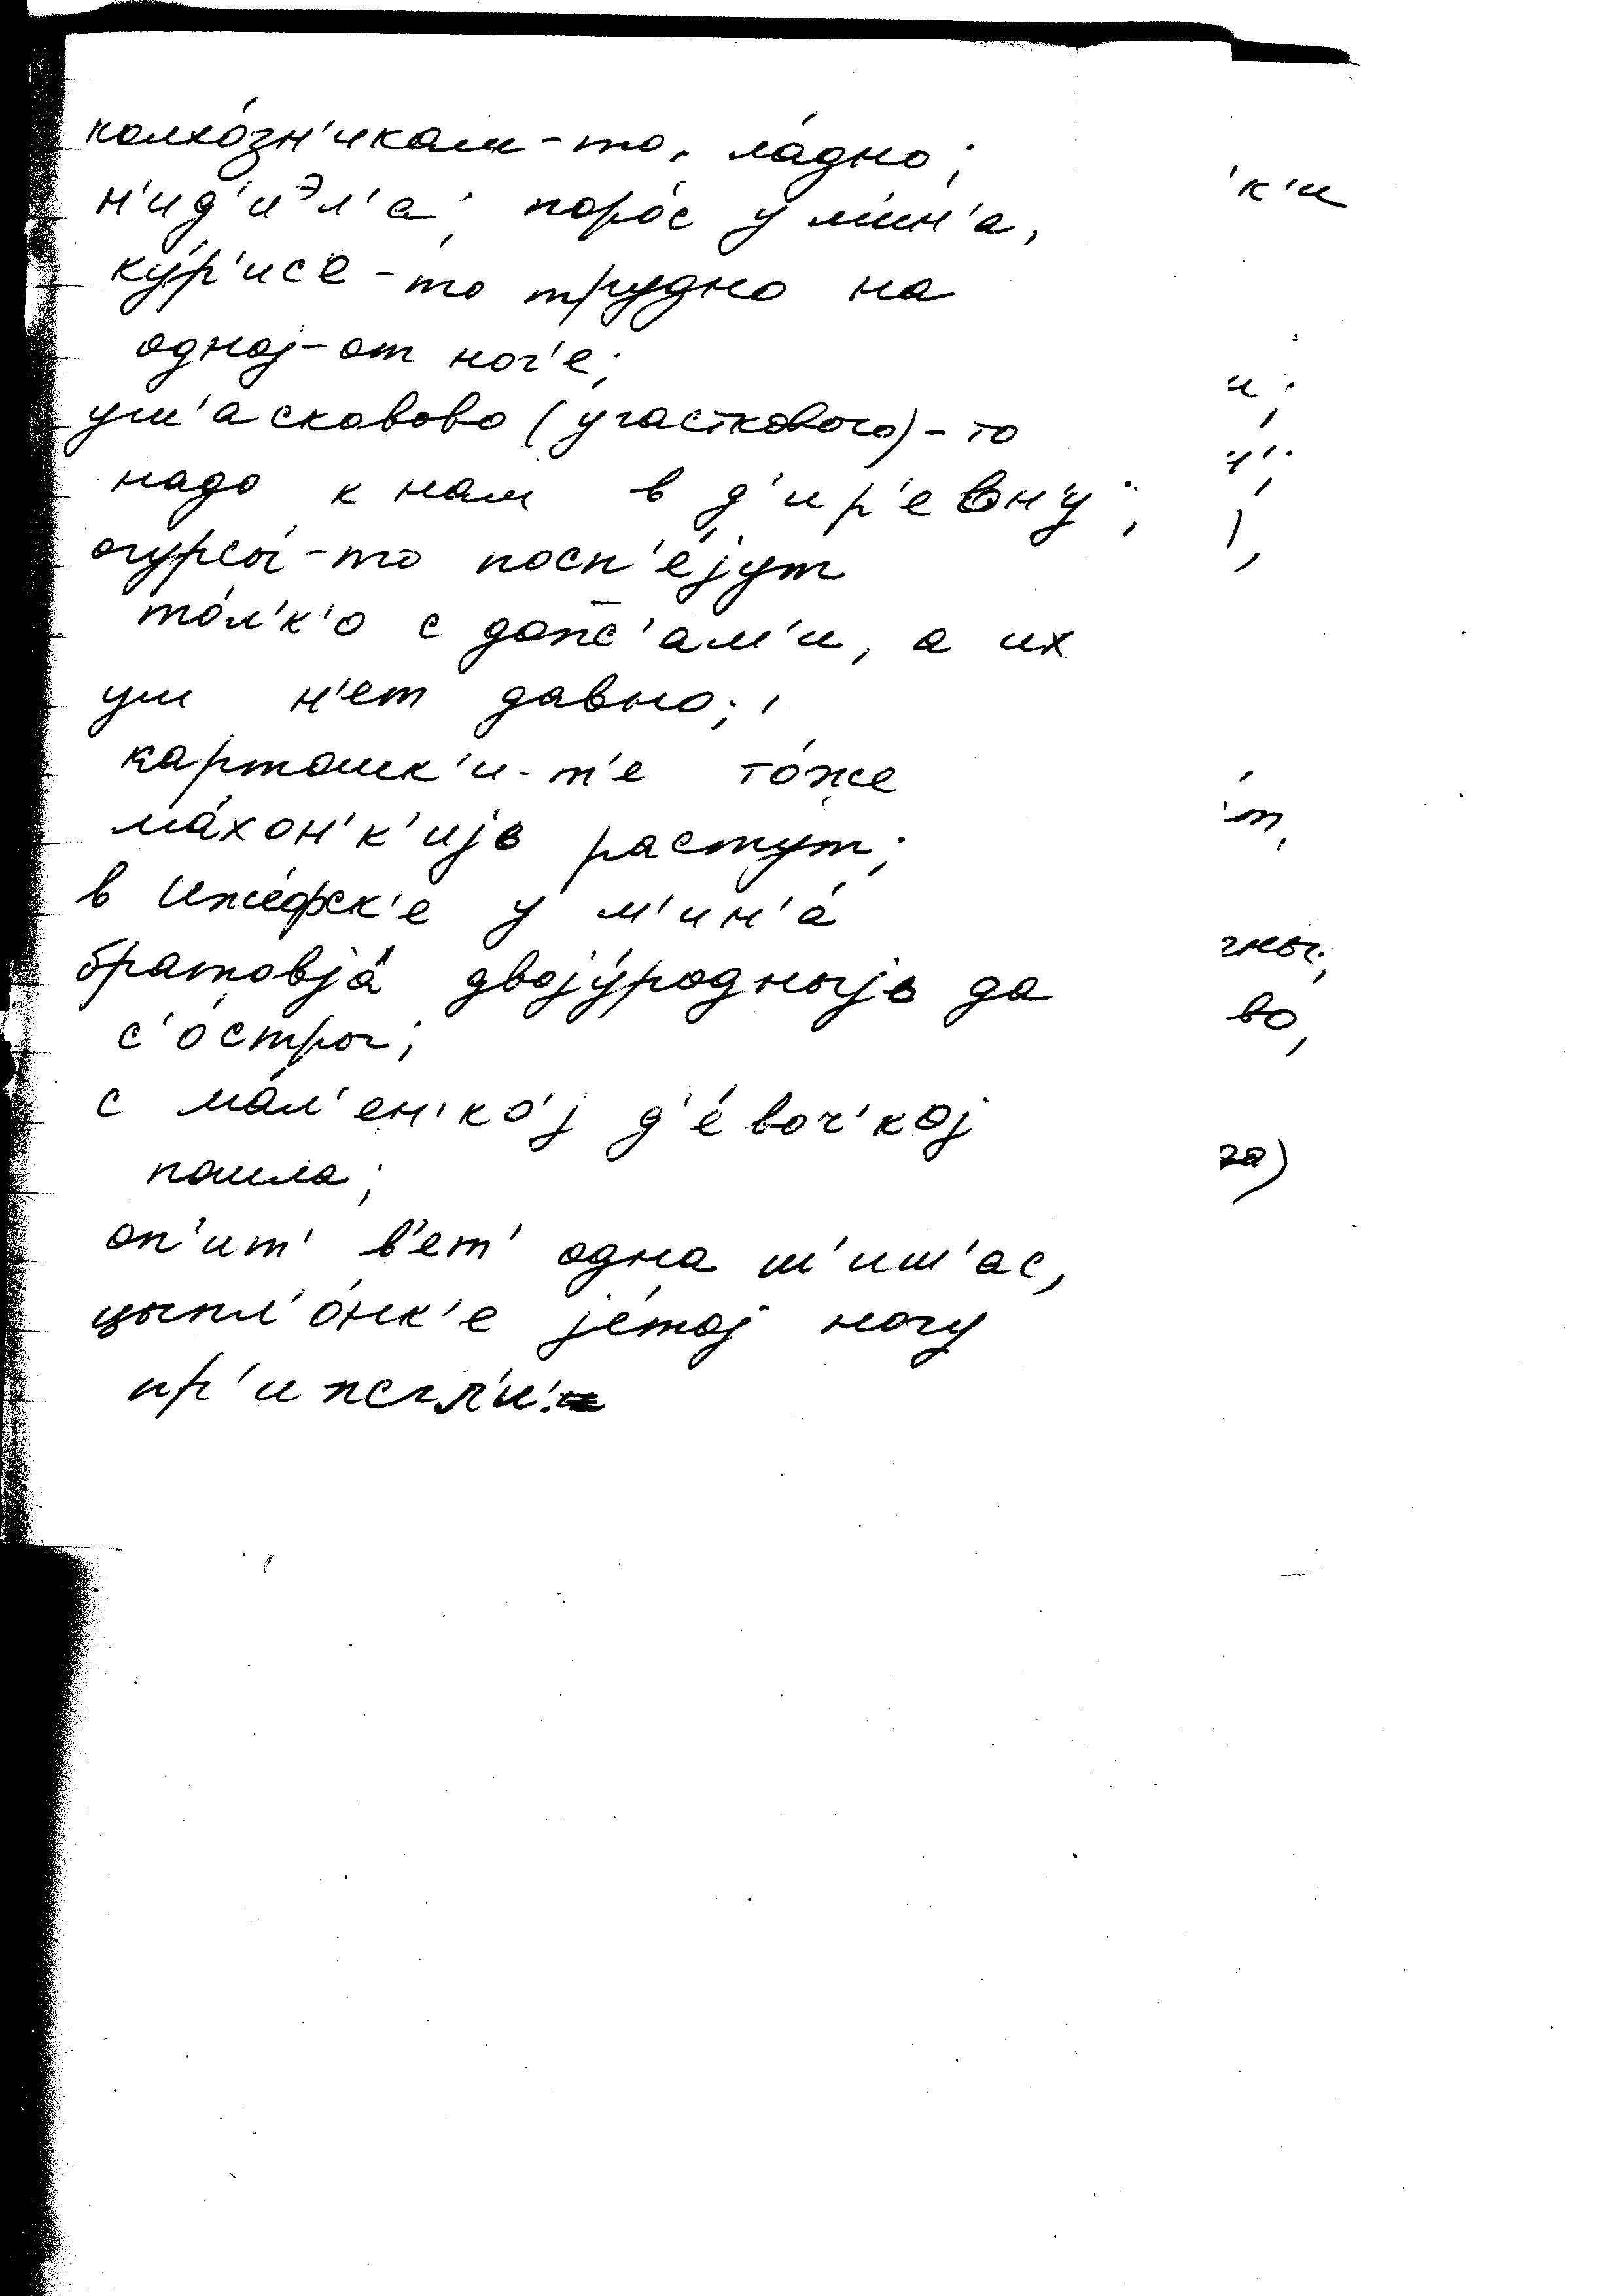 колхо́зн'икам-то, ла́дно;
н'ид'иэл'а; поро́с у мин'а,
ку́р'исе-то трудно на
одној-от ног'е;
уш'асковово (участкового)-то
надо к нам в д'ир'евн'у;
огурсы́-то посп'е́јут
то́л'к'о с дож'ам'и, а их
уш н'ет давно;
картошк'и-т'е то́же
ма́хон'к'ијо растут;
в Иже́фск'е у м'ин'а́
братовја́ двоју́родныјо да
с'о́стры;
с ма́л'ен'ко'ј д'е́воч'кој
пошла;
оп'ит' в'ет' одна ш'иш'ас,
цыпл'о́нк'е је́тој ногу
пр'ижгл'и.
'к'и
и;
ч';
),
'т,
чны;
во,
га)